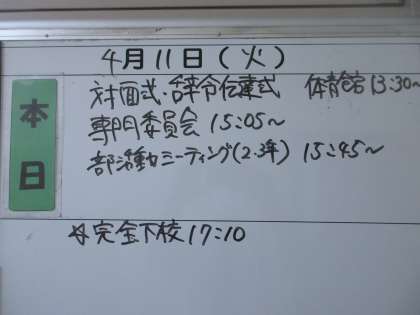 4月11日(火)
本日
対面式・辞令伝達式 体育館 13:30~
専門委員会 15:05~
部活動ミーティング(2.3年) 15:45~
☆完全下校 17:10